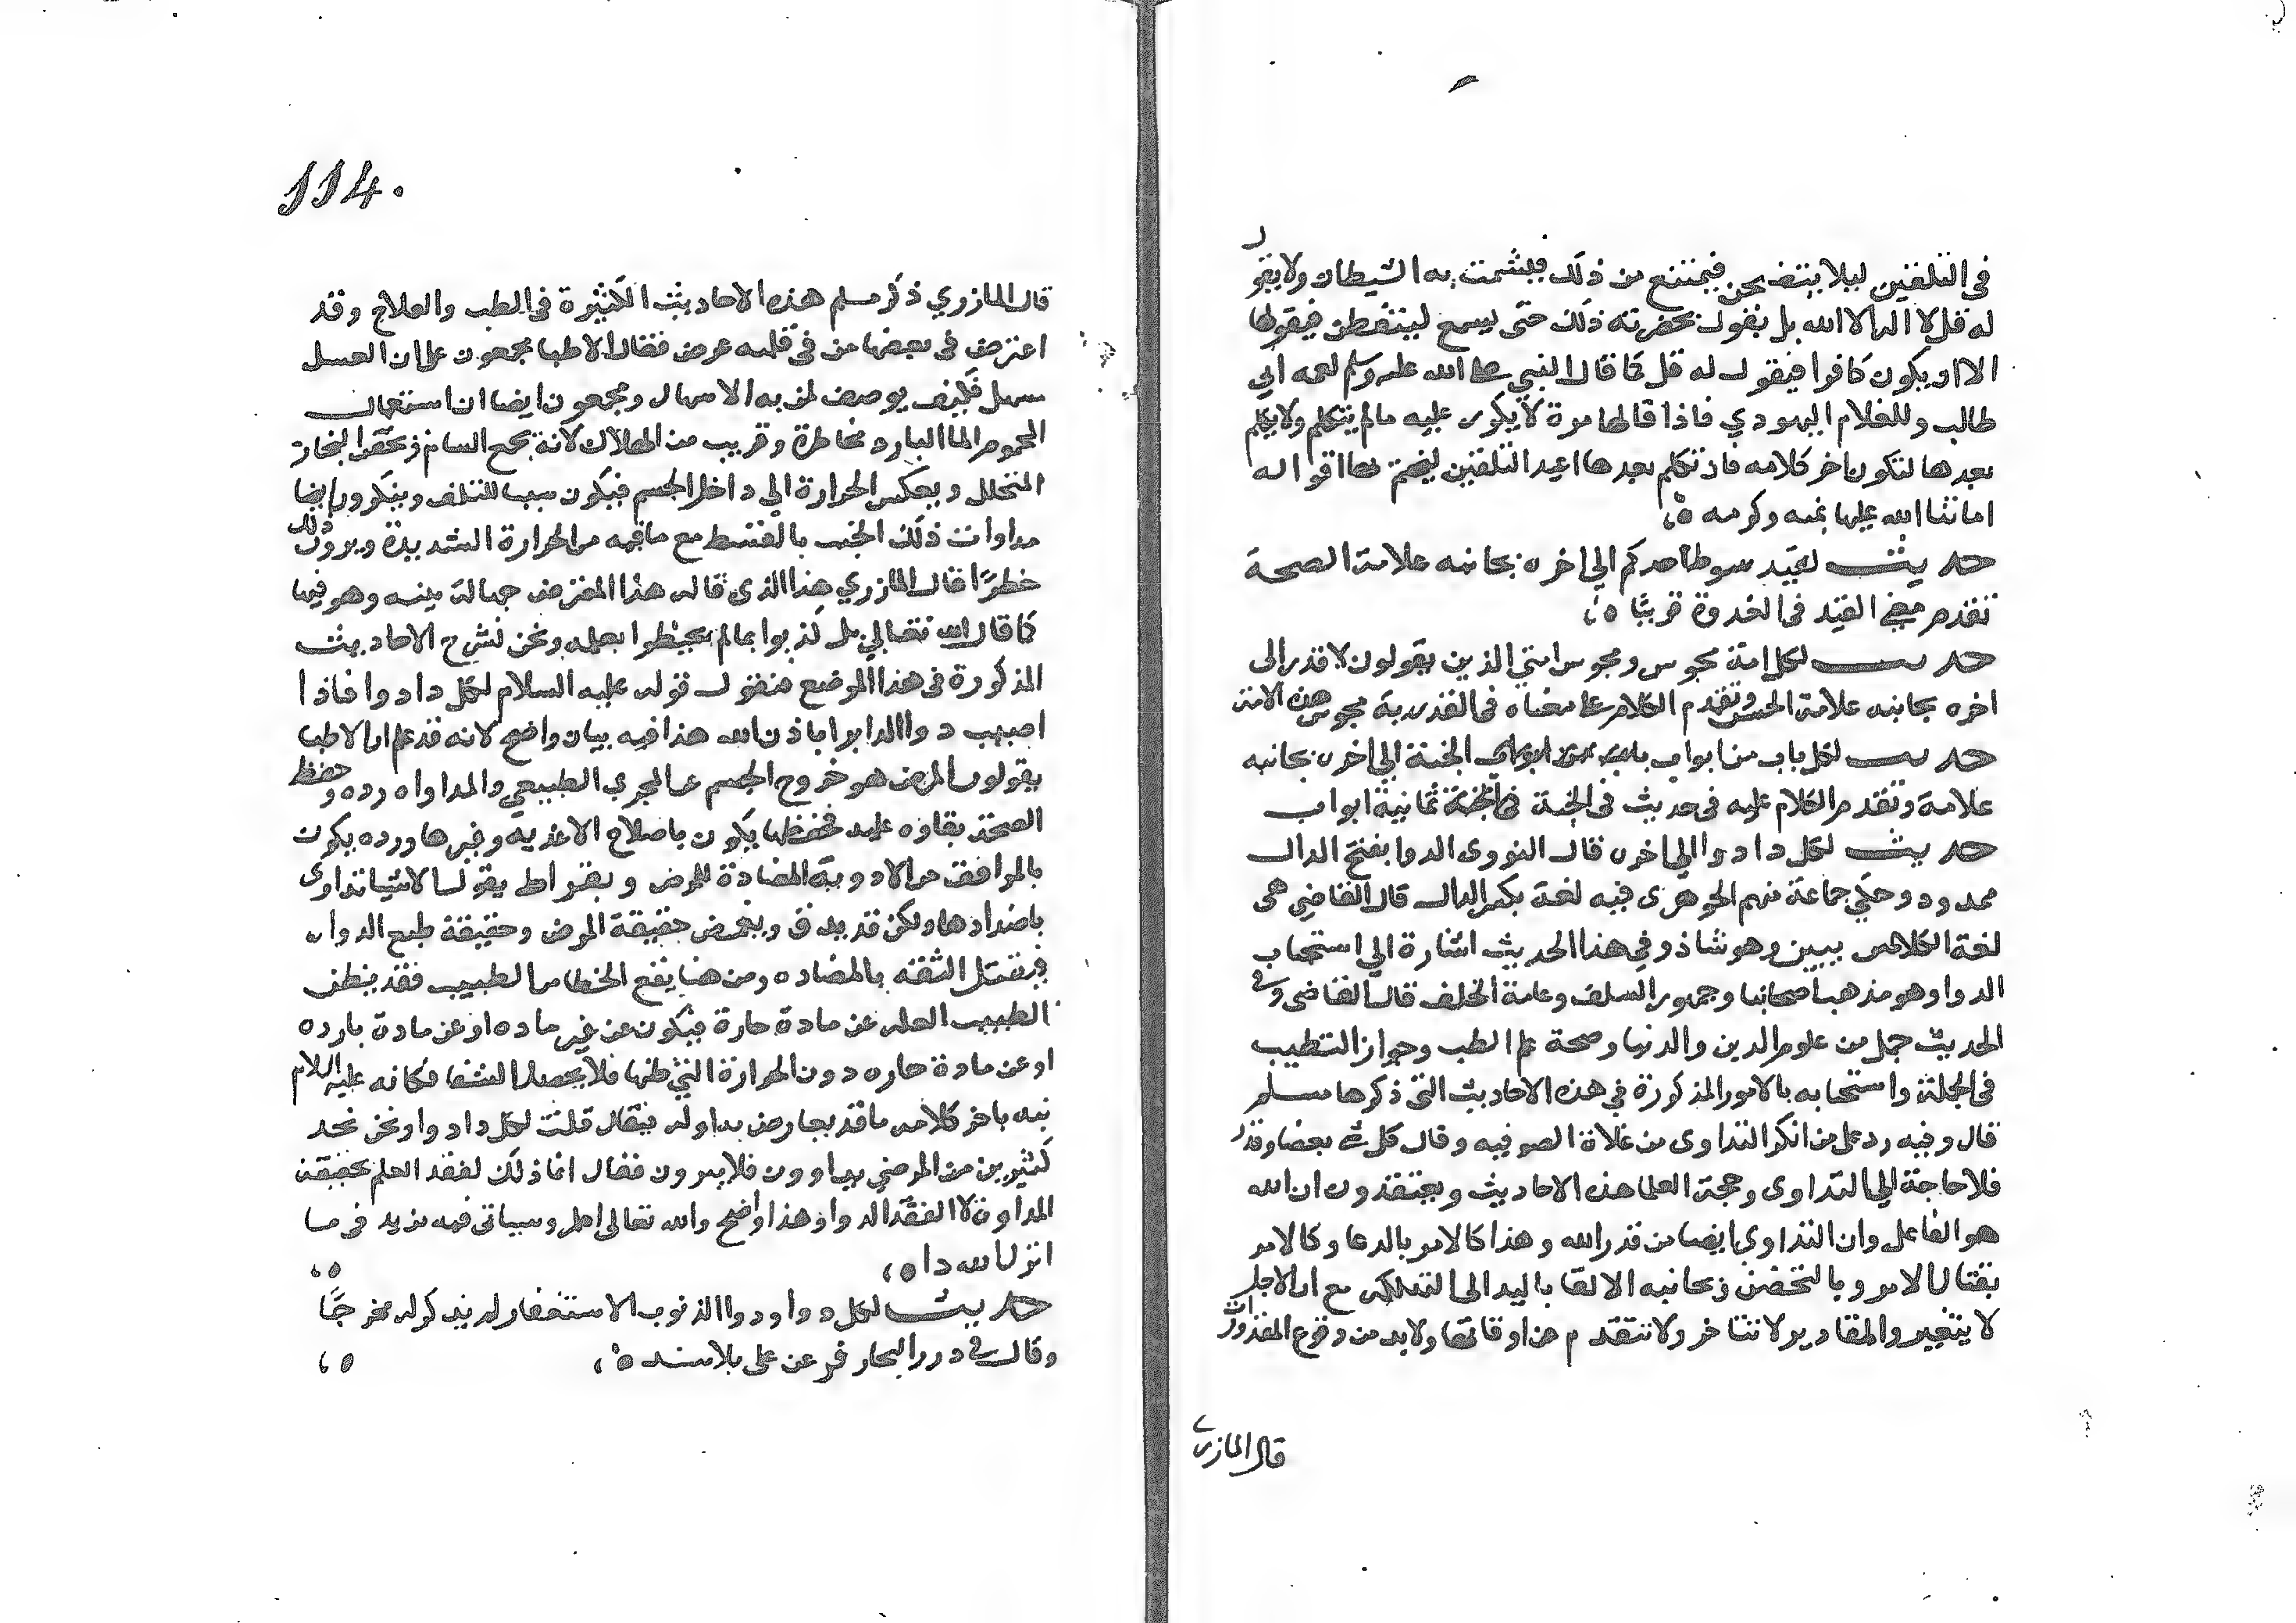 في التلقين ليلا يتضجر فيمتنع من ذلك فيشمت به الشيطان ولا يقول
له قل لا اله الا الله بل يقول بحضرته ذلك حتى يسمع ليتفطن فيقولها
الا ان يكون كافرا فيقول له قل كما قال النبي صلى الله عليه وسلم لعمه ابي
طالب وللغلام اليهودي فاذا قالها مرة لا يكرر عليه مالم يتكلم ولا يكلم
بعدها لتكون اخر كلامه فان تكلم بعدها اعيد التلقين ليختم بها اقواله
اماتنا الله عليها بمنه وكرمه ه
حديث لقيد سوط احدكم الي اخره بجانبه علامة الصحة
تقدم معني القيد في الغدوة قريبًا ه
حديث لكل امة مجوس ومجوس امتي الذين يقولون لا قدر الى
اخره بجانبه علامة الحسن وتقدم الكلام على معناه في القدرية مجوس هذه الامة
حديث لكل باب من ابواب الجنة الي اخره بجانبه
علامة وتقدم الكلام عليه في حديث في الجنة ثمانية ابواب
حديث لكل دا دوا الي اخره قال النووى الدوا بفتح الدال
ممدود وحكي جماعة منهم الجوهرى فيه لغة بكسر الدال قال القاضي هى
لغة الكلابيين وهو شاذ وفي هذا الحديث اشارة الي استحباب
الدوا وهو مذهب اصحابنا وجمهور السلف وعامة الخلف قال القاضى وفى
الحديث جمل من علوم الدين والدنيا وصحة علم الطب وجواز التطبب
في الجملة واستحبابه بالامور المذكورة في هذه الاحاديث التى ذكرها مسلم
قال وفيه رد على من انكر التداوى من غلاة الصوفيه وقال كل شي بقضا وقدر
فلا حاجة الي التداوى وحجة العلما هذه الاحاديث ويعتقدون ان الله
هو الفاعل وان التداوي ايضا من قدر الله وهذا كالامر بالدعا وكالامر
بقتال الامر وبالتحصن ومجانبه الالقا باليد الى التهلكه مع ان الاجل
لا يتغير والمقادير لا تتاخر ولا تتقدم عن اوقاتها ولا بد من وقوع المقدورات
قال المازري
114.
قال المازري ذكر مسلم هذه الاحاديث الكثيرة في الطب والعلاج وقد
اعترض في بعضها من في قلبه مرض فقال الاطبا مجمعون على ان العسل
مسهل فكيف يوصف لمن به الاسهال ومجمعون ايضا ان استعمال
المحموم الما البارد مخاطرة وقريب من الهلاك لانه يجمع المسام ويحقن البخار
المتحلل ويعكس الحرارة الي داخل الجسم فيكون سببا للتلف وينكرون ايضا
مداواة ذات الجنب بالقسط مع ما فيه من الحرارة الشديدة ويرون ذلك
خطرًا قال المازري هذا الذى قاله هذا المعترض جهالة بينه وهو فيها
كما قال الله تعالي بل كذبوا بمالم يحيطوا بعلمه ونحن نشرح الاحاديث
المذكورة في هذا الموضع فنقول قوله عليه السلام لكل دا دوا فاذا
اصيب دوا الدا برا باذن الله هذا فيه بيان واضح لانه قد علم ان الاطبا
يقولون المرض هو خروج الجسم عن المجرى الطبيعي والمداواه رده وحفظ
الصحة بقاوه عليه فحفظها يكون باصلاح الاغذيه وغيرها ورده يكون
بالموافق من الادوية المضادة للمرض وبقراط يقول الاشيا تداوى
باضدادها ولكن قد يدق ويغمض حقيقة المرض وحقيقة طبع الدوا
فيقل الثقه بالمضاده ومن هنا يقع الخطا من الطبيب فقد يظن
الطبيب العله عن مادة حارة فيكون عن غير ماده او عن مادة بارده
او عن مادة حاره دون الحرارة التي ظنها فلا يحصل الشفا فكانه عليه السلام
نبه باخر كلامه ما قد يعارض به اوله فيقال قلت لكل دا دوا ونحن نجد
كثيرين من المرضي يداوون فلا يبرون فقال انما ذلك لفقد العلم بحقيقة
المداواة لا لفقد الدوا وهذا واضح والله تعالى اعلم وسياتى فيه مزيد في ما
انزل الله دا ه
حديث لكل دا دوا ودوا الذنوب الاستغفار لم يذكر له مخرجًا
وقال في درر البحار فر عن على بلا سند ه